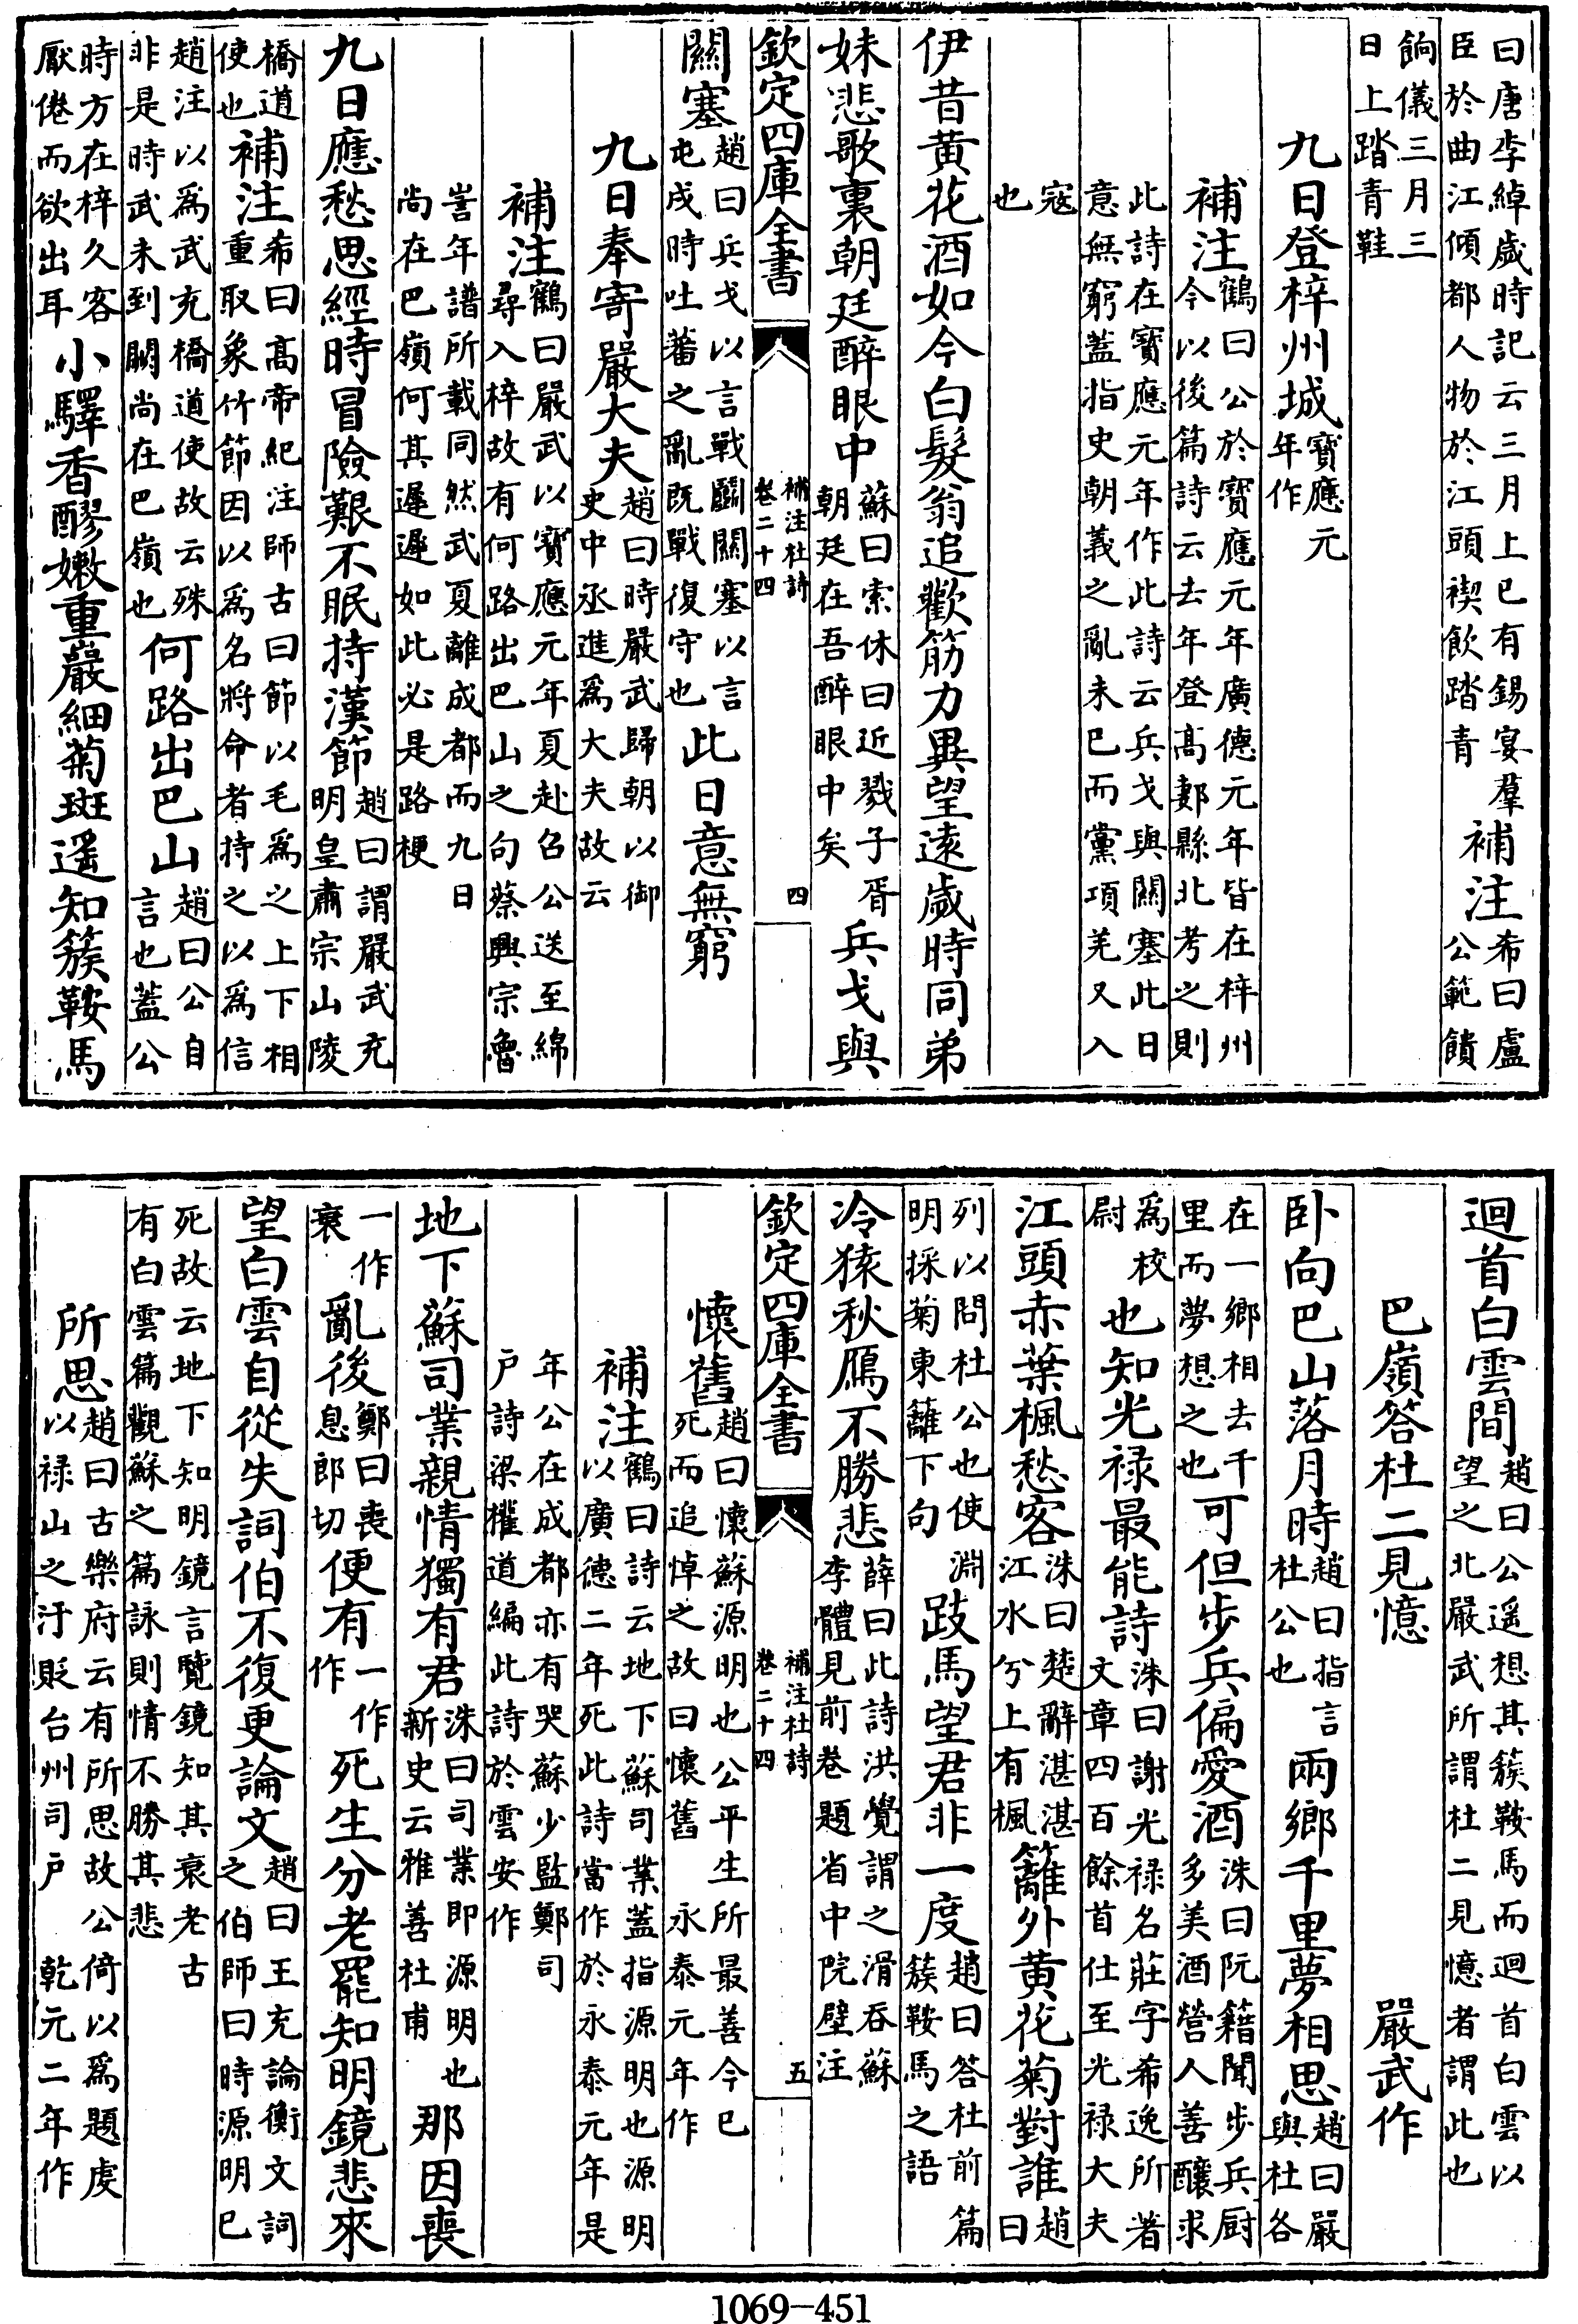 曰唐李綽歲時記云三月上巳有錫宴羣
臣於曲江傾都人物於江頭禊飲踏青
補注
希曰盧
公範饋
餉儀三月三
日上踏青鞋
九日登梓州城
寶應元
年作
補注
鶴曰公於寶應元年廣德元年皆在梓州
今以後篇詩云去年登髙郪縣北考之則
此詩在寶應元年作此詩云兵戈與關塞此日
意無窮蓋指史朝義之亂未已而黨項羌又入
寇
也
伊昔黄花酒如今白髮翁追歡筋力異望遠歲時同弟
妹悲歌裏朝廷醉眼中
蘇曰索休曰近戮子胥
朝廷在吾醉眼中矣
兵戈與
欽定四庫全書
補注杜詩
卷二十四
四
關塞
趙曰兵戈以言戰鬭關塞以言
屯戍時吐蕃之亂既戰復守也
此日意無窮
九日奉寄嚴大夫
趙曰時嚴武歸朝以御
史中丞進爲大夫故云
補注
鶴曰嚴武以寶應元年夏赴召公送至綿
尋入梓故有何路出巴山之句蔡興宗魯
訔年譜所載同然武夏離成都而九日
尚在巴嶺何其遲遲如此必是路梗
九日應愁思經時冒險艱不眠持漢節
趙曰謂嚴武充
明皇肅宗山陵
橋道
使也
補注
希曰髙帝紀注師古曰節以毛爲之上下相
重取象竹節因以爲名將命者持之以爲信
趙注以爲武充橋道使故云殊
非是時武未到闕尚在巴嶺也
何路出巴山
趙曰公自
言也蓋公
時方在梓久客
厭倦而欲出耳
小驛香醪嫩重巖細菊斑遥知簇鞍馬
迴首白雲間
趙曰公遥想其簇鞍馬而迴首白雲以
望之北嚴武所謂杜二見憶者謂此也
巴嶺答杜二見憶
嚴武作
卧向巴山落月時
趙曰指言
杜公也
兩鄉千里夢相思
趙曰嚴
與杜各
在一鄉相去千
里而夢想之也
可但步兵偏愛酒
洙曰阮籍聞步兵厨
多美酒營人善釀求
爲校
尉
也知光禄最能詩
洙曰謝光禄名莊字希逸所著
文章四百餘首仕至光禄大夫
江頭赤葉楓愁客
洙曰楚辭湛湛
江水兮上有楓
籬外黄花菊對誰
趙
曰
列以問杜公也使淵
明採菊東籬下句
跂馬望君非一度
趙曰答杜前篇
簇鞍馬之語
冷猿秋鴈不勝悲
薛曰此詩洪覺謂之滑吞蘇
李體見前卷題省中院壁注
欽定四庫全書
補注杜詩
卷二十四
五
懷舊
趙曰懷蘇源明也公平生所最善今已
死而追悼之故曰懷舊永泰元年作
補注
鶴曰詩云地下蘇司業蓋指源明也源明
以廣德二年死此詩當作於永泰元年是
年公在成都亦有哭蘇少監鄭司
户詩梁權道編此詩於雲安作
地下蘇司業親情獨有君
洙曰司業即源明也
新史云雅善杜甫
那因喪
一作
衰
亂後
鄭曰喪
息郎切
便有
一作
作
死生分老罷知明鏡悲來
望白雲自從失詞伯不復更論文
趙曰王充論衡文詞
之伯師曰時源明已
死故云地下知明鏡言覽鏡知其衰老古
有白雲篇觀蘇之篇詠則情不勝其悲
所思
趙曰古樂府云有所思故公倚以爲題虔
以禄山之汙貶台州司户乾元二年作
1069-451